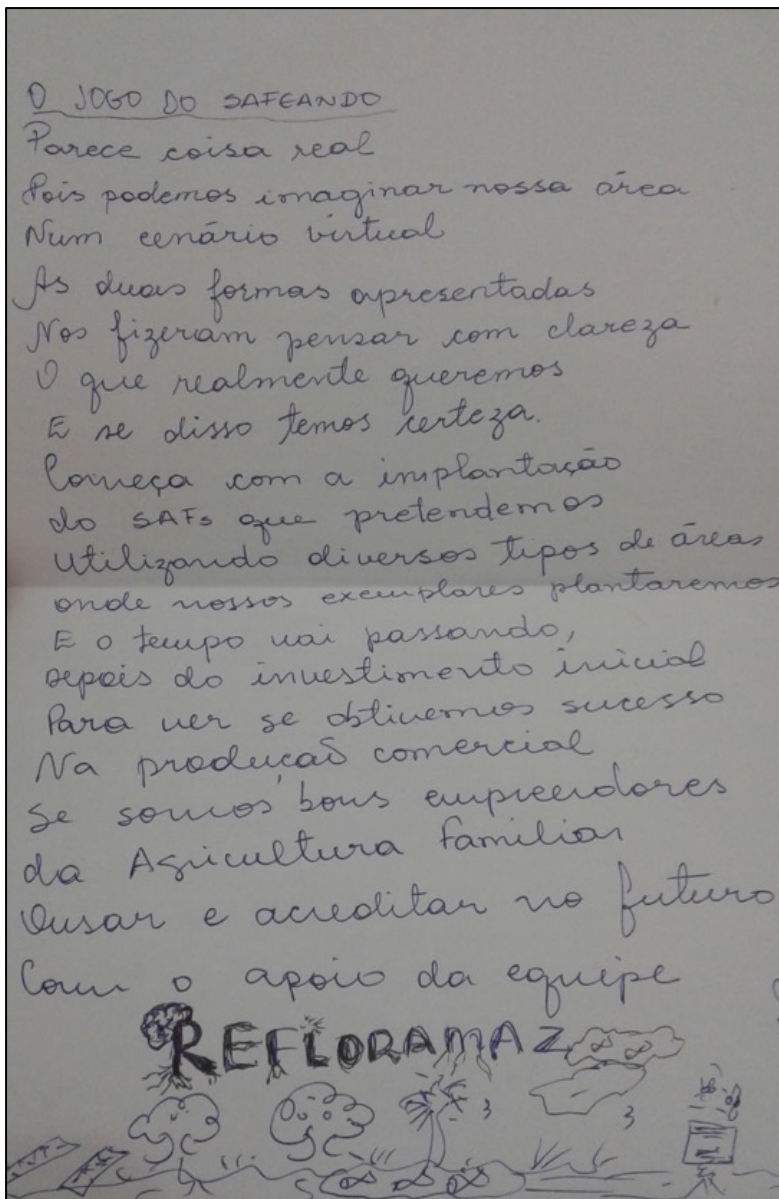 O JOGO DO SAFEANDO
Parece coisa real
Pois podemos imaginar nossa área
Num cenário virtual
As duas formas apresentadas
Nos fizeram pensar com clareza
O que realmente queremos
E se disso temos certeza.
Começa com a implantação
do SAFs que pretendemos
Utilizando diversos tipos de áreas
onde nossos exemplares plantaremos
E o tempo vai passando,
depois do investimento inicial
Para ver se obtivemos sucesso
Na produção comercial
Se somos bons empreendores
da Agricultura Familiar
Ousar e acreditar no futuro
Com o apoio da equipe
REFLORAMAZ